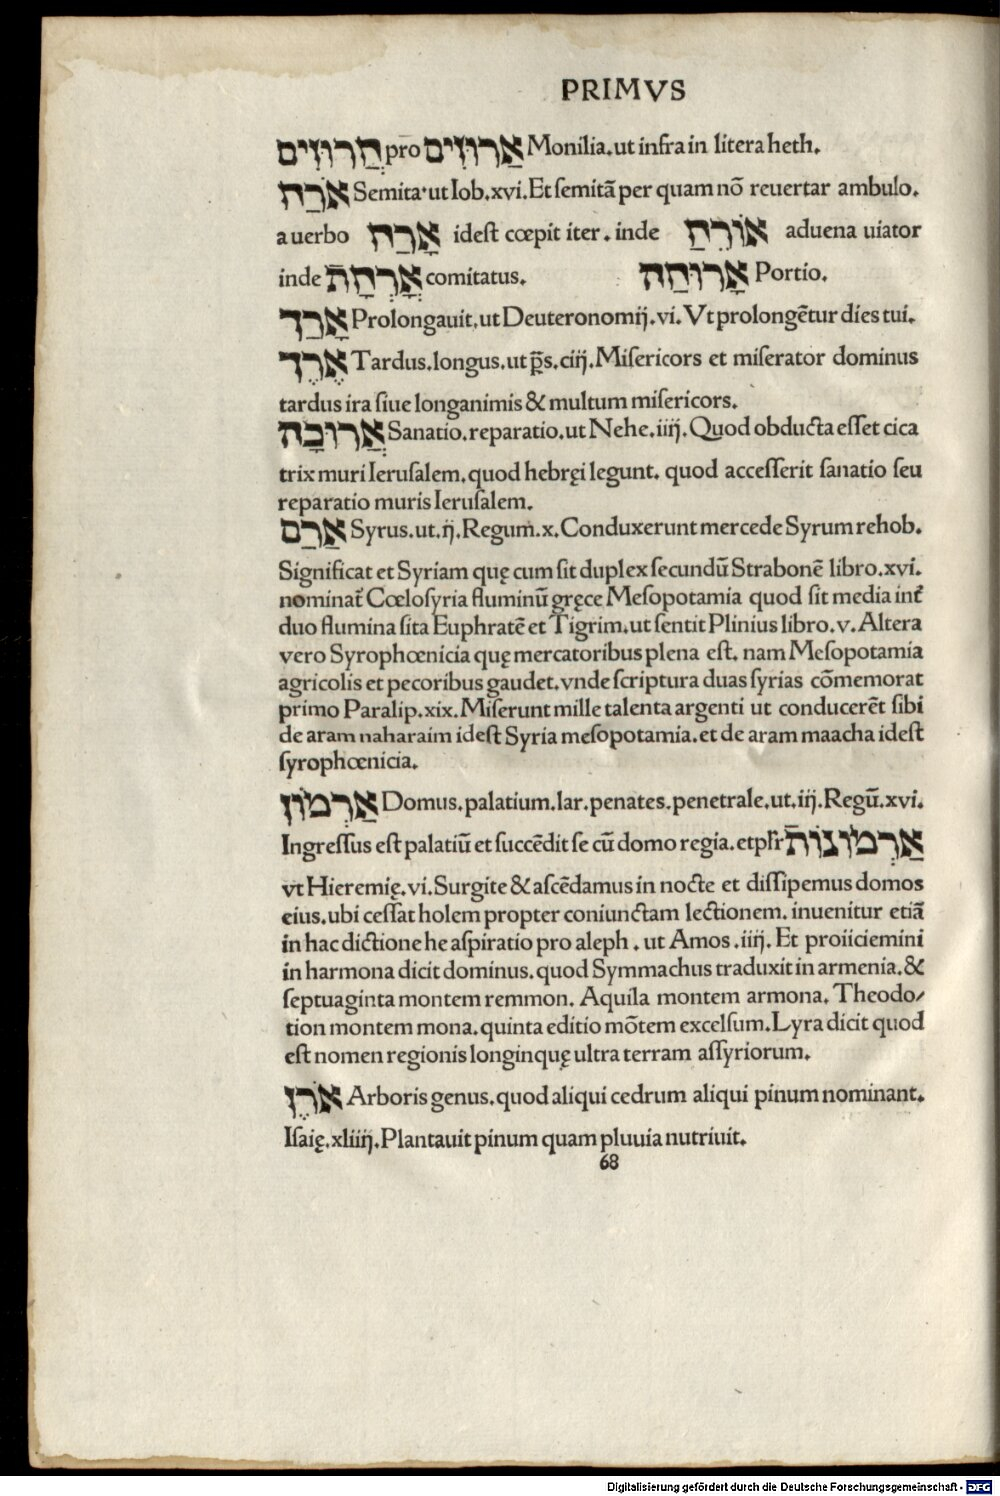 PRIMVS
חֲרוּזִים pro אַרוּזִים Monilia.ut infra in litera heth.
אֹרַח Semita.ut Iob.xvi.Et semitā per quam nō reuertar ambulo.
a uerbo אָרַח idest cœpit iter. inde אוֹרֵחַ aduena uiator
inde אָרְחָת comitatus. אָרוּחָה Portio.
אָרַך Prolongauit,ut Deuteronomij.vi.Vt prolongētur dies tui.
אֶרֶך Tardus.longus.ut p̄s.ciij.Misericors et miserator dominus
tardus ira siue longanimis & multum misericors.
אֲרוּכָה Sanatio.reparatio.ut Nehe.iiij.Quod obducta esset cica
trix muri Ierusalem.quod hebręi legunt. quod accesserit sanatio seu
reparatio muris Ierusalem.
אַרַם Syrus.ut.ij.Regum.x.Conduxerunt mercede Syrum rehob.
Significat et Syriam quę cum sit duplex secundū Strabonē libro.xvi.
nominat᷑ Cœlosyria fluminū gręce Mesopotamia quod sit media int᷑
duo flumina sita Euphratē et Tigrim.ut sentit Plinius libro.v.Altera
vero Syrophœnicia quę mercatoribus plena est. nam Mesopotamia
agricolis et pecoribus gaudet.vnde scriptura duas syrias cōmemorat
primo Paralip.xix.Miserunt mille talenta argenti ut conducerēt sibi
de aram naharaim idest Syria mesopotamia.et de aram maacha idest
syrophœnicia.
אַרְמֹון Domus.palatium.lar.penates.penetrale.ut.iij.Regū.xvi.
Ingressus est palatiū et succēdit se cū domo regia.et pl̄r אַרְמֹונוֹת
vt Hieremię.vi.Surgite & ascēdamus in nocte et dissipemus domos
eius.ubi cessat holem propter coniunctam lectionem. inuenitur etiā
in hac dictione he aspiratio pro aleph . ut Amos .iiij. Et proiiciemini
in harmona dicit dominus.quod Symmachus traduxit in armenia.&
septuaginta montem remmon. Aquila montem armona. Theodo/
tion montem mona.quinta editio mōtem excelsum.Lyra dicit quod
est nomen regionis longinquę ultra terram assyriorum.
אֹרֶן Arboris genus.quod aliqui cedrum aliqui pinum nominant.
Isaię.xliiij.Plantauit pinum quam pluuia nutriuit.
68
Digitalisierung gefördert durch die Deutsche Forschungsgemeinschaft - DFG